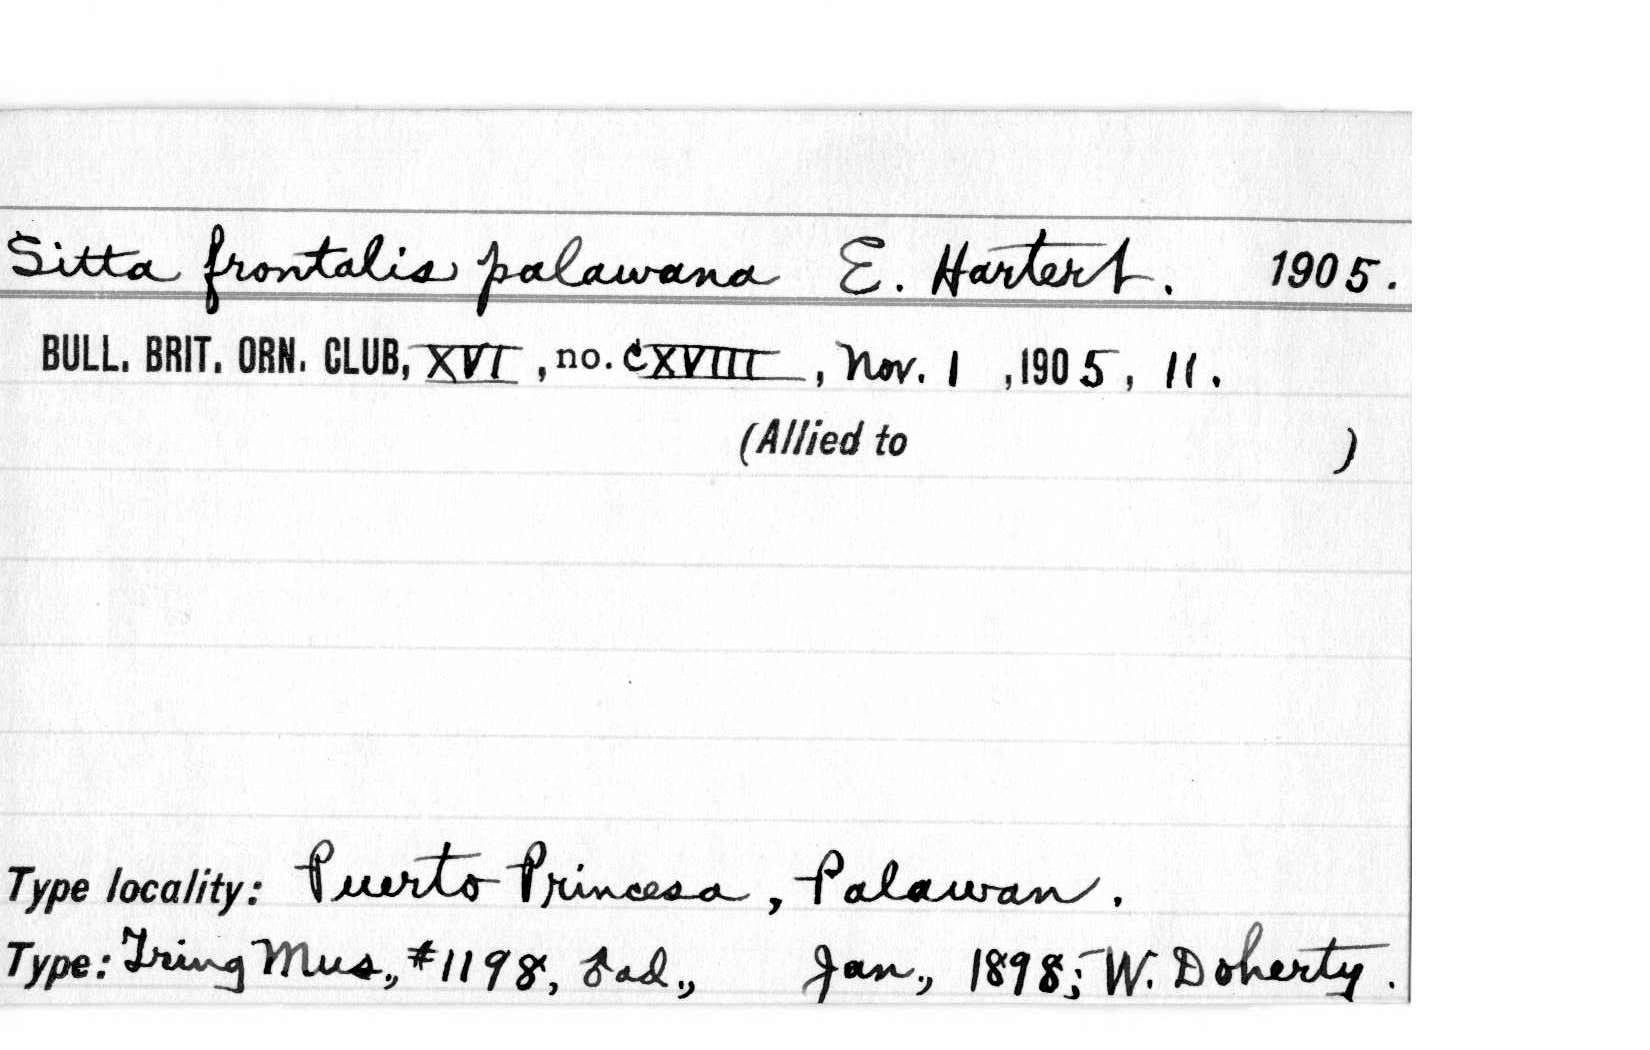 Sitta frontalis palawana E. Hartert. 1905.
BULL. BRIT. ORN. CLUB, XVI, no. CXVIII, Nov. 1, 1905, 11.
(Allied to )
Type locality: Puerto Princesa, Palawan.
Type: Tring Mus., #1198, ad., Jan., 1898; W. Doherty.